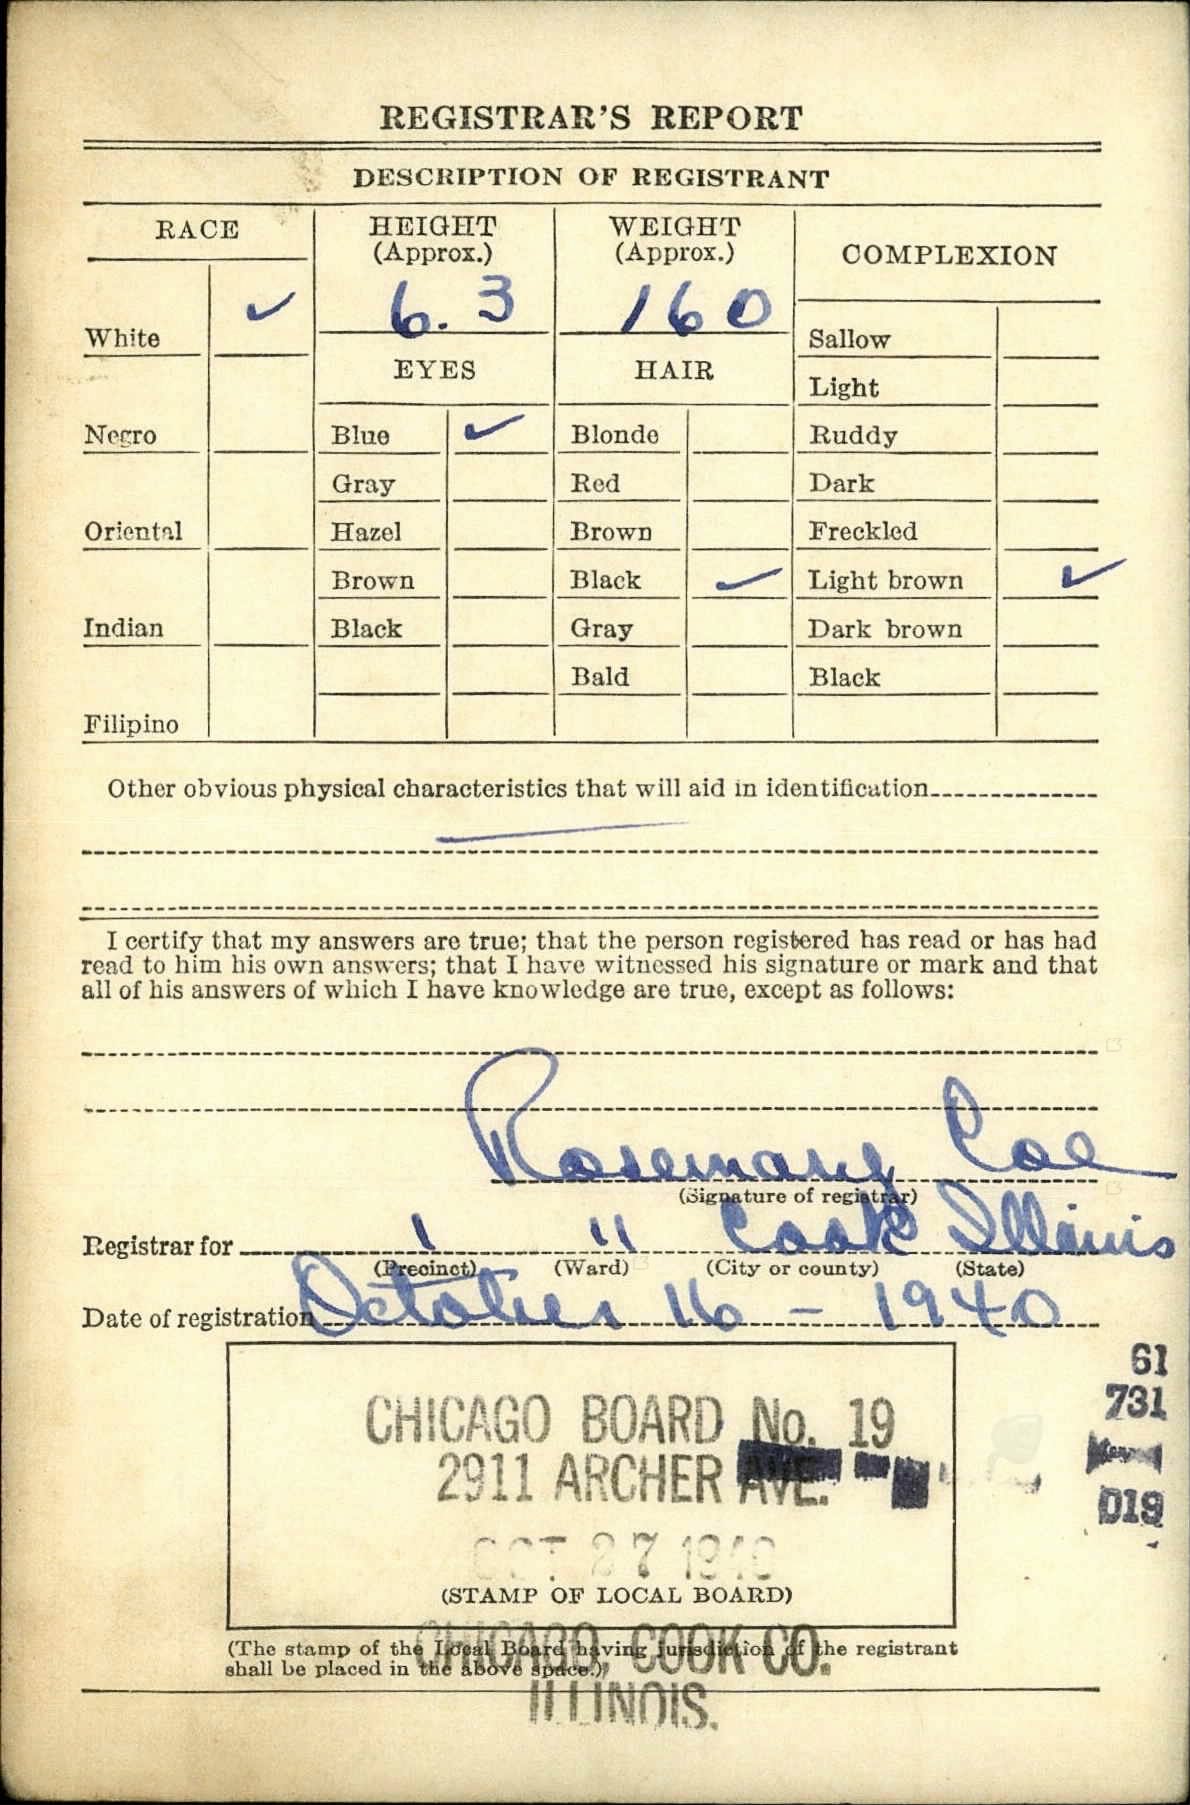 REGISTRAR'S REPORT
DESCRIPTION OF REGISTRANT
RACE
HEIGHT
(Approx.)
WEIGHT
(Approx.)
COMPLEXION
White ✓
6. 3
160
Sallow
EYES
HAIR
Light
Negro
Blue ✓
Blonde
Ruddy
Gray
Red
Dark
Oriental
Hazel
Brown
Freckled
Brown
Black ✓
Light brown ✓
Indian
Black
Gray
Dark brown
Bald
Black
Filipino
Other obvious physical characteristics that will aid in identification
I certify that my answers are true; that the person registered has read or has had
read to him his own answers; that I have witnessed his signature or mark and that
all of his answers of which I have knowledge are true, except as follows:
Rosemary Coe
(Signature of registrar)
Registrar for 1 11 Cook Illinois
(Precinct) (Ward) (City or county) (State)
Date of registration October 16 - 1940
61
731
019
CHICAGO BOARD No. 19
2911 ARCHER AVE.
OCT 27 1940
(STAMP OF LOCAL BOARD)
(The stamp of the Local Board having jurisdiction of the registrant
shall be placed in the above space.)
CHICAGO, COOK CO.
ILLINOIS.